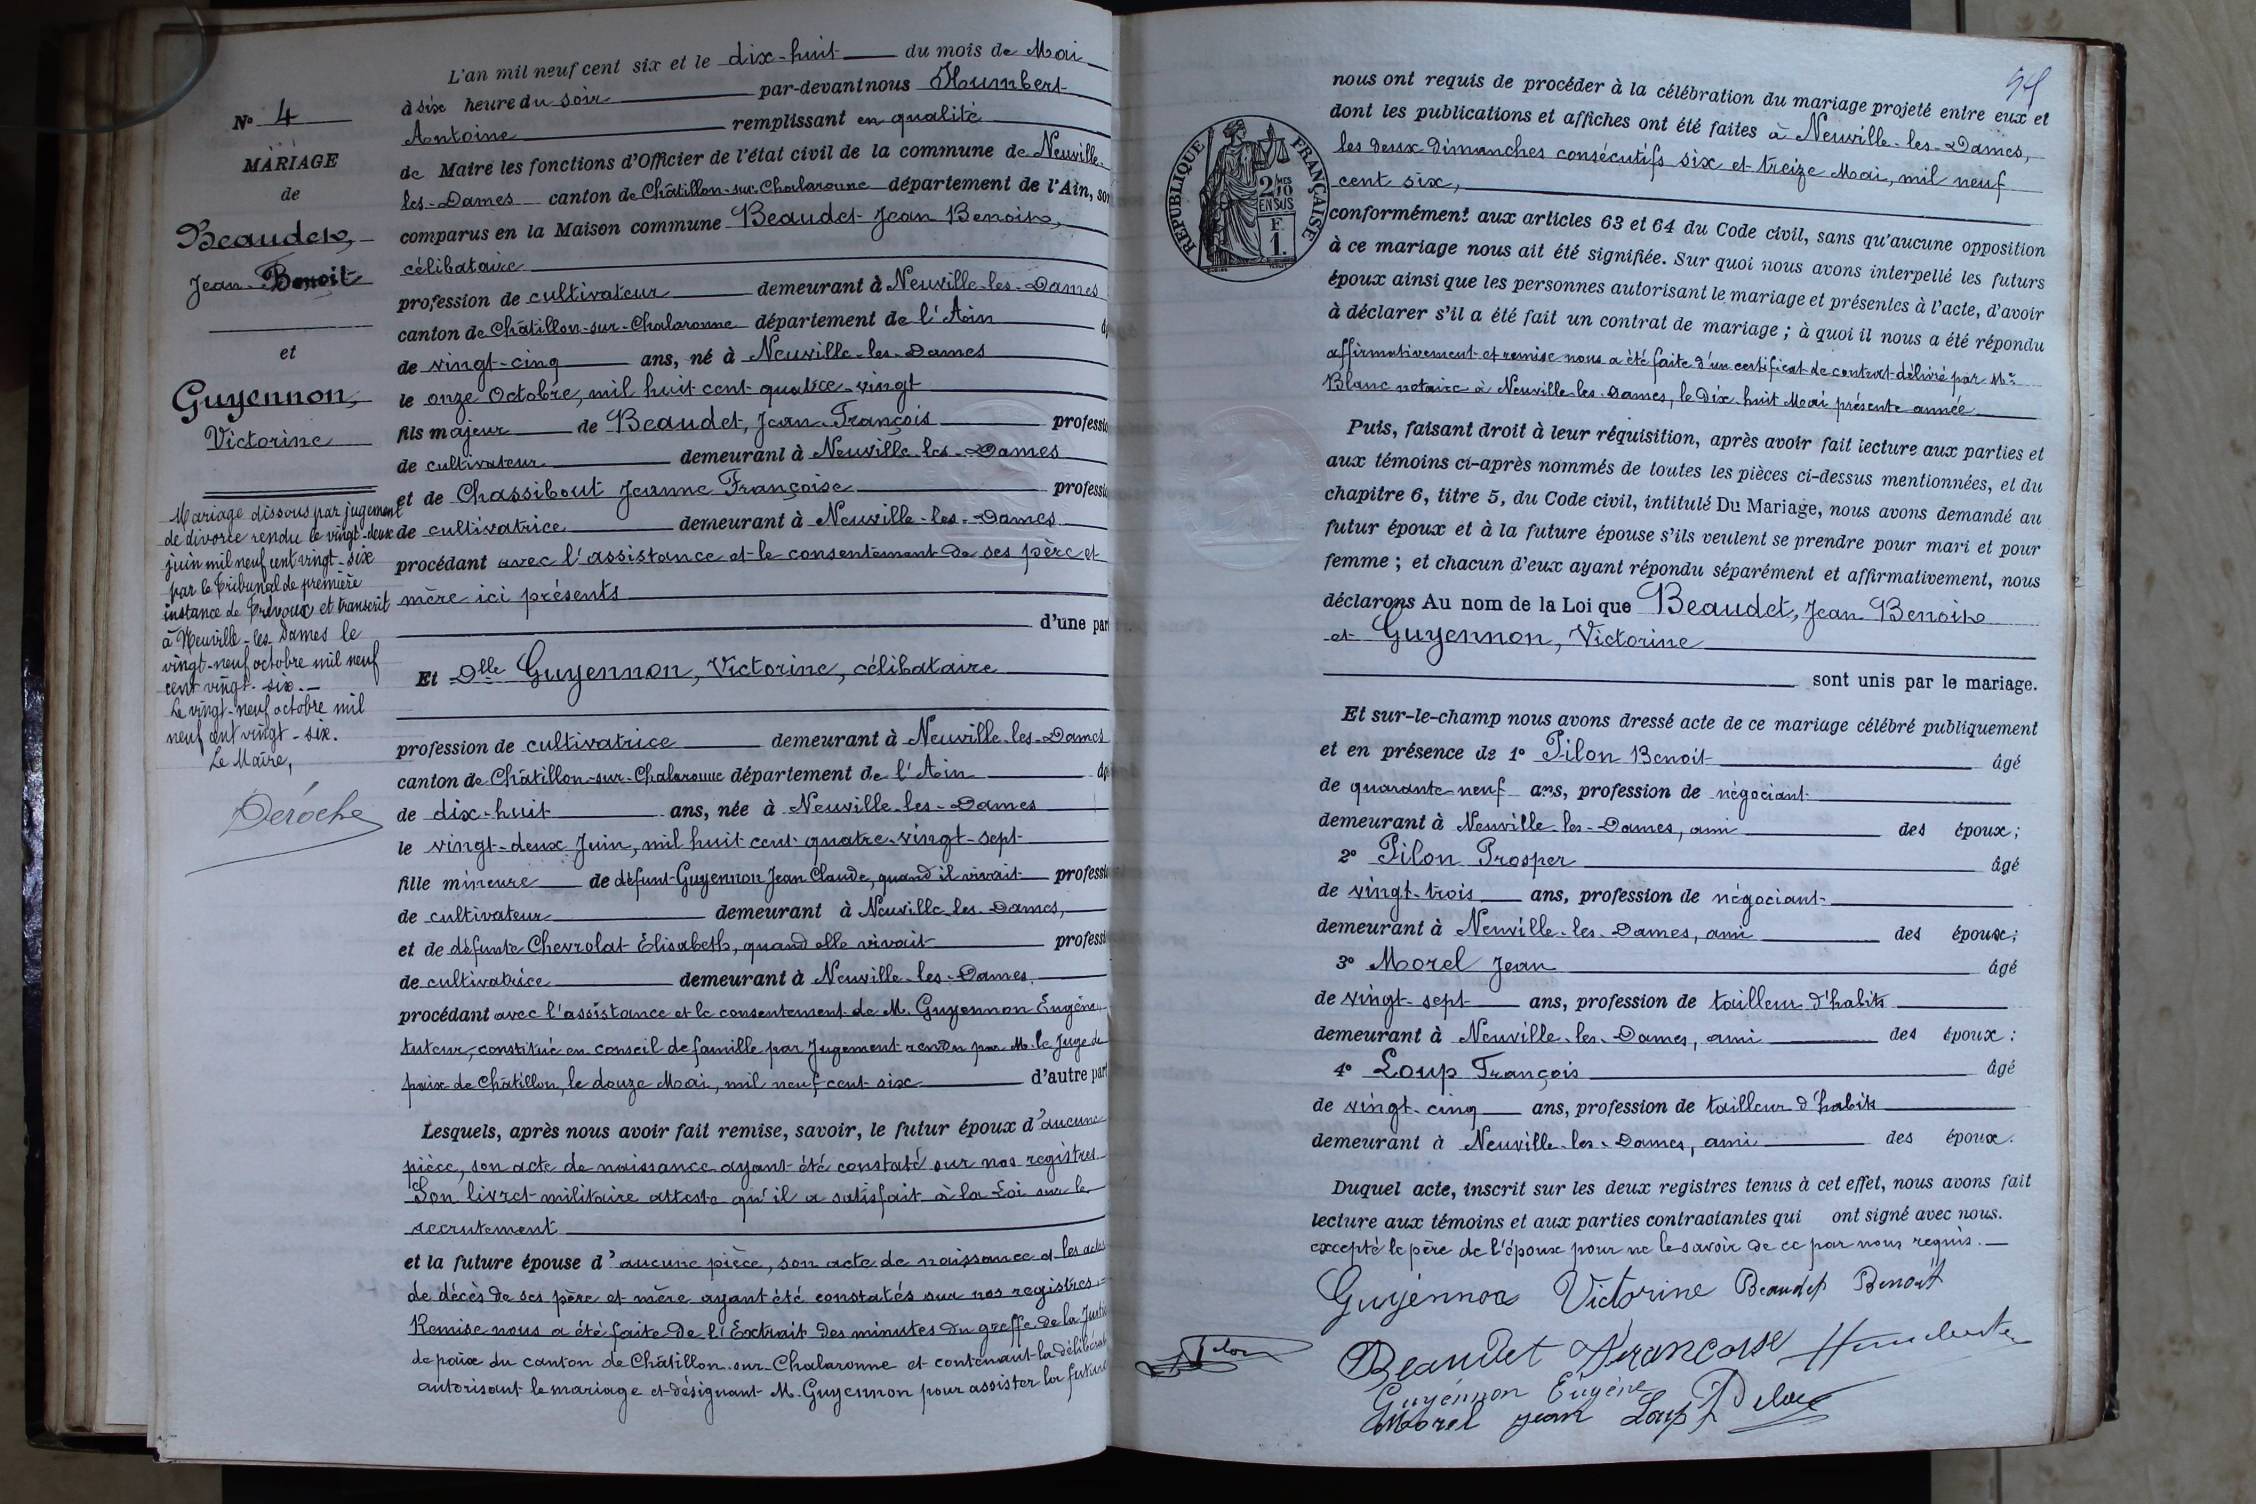 N° 4
MARIAGE
de
Beaudet,
Jean Benoit
et
Guyennon,
Victorine
Mariage dissous par jugement
de divorce rendu le vingt-deux
juin mil neuf cent vingt-six
par le Tribunal de première
instance de Trévoux et transcrit
à Neuville-les-Dames le
vingt-neuf octobre mil neuf
cent vingt-six.
Le vingt-neuf octobre mil
neuf cent vingt-six.
Le Maire,
Déroche
L'an mil neuf cent six et le dix-huit du mois de Mai
à six heure du soir par-devant nous Humbert
Antoine remplissant en qualité
de Maire les fonctions d'Officier de l'état civil de la commune de Neuville-
les-Dames canton de Châtillon-sur-Chalaronne département de l'Ain, son
comparus en la Maison commune Beaudet Jean Benoit,
célibataire
profession de cultivateur demeurant à Neuville-les-Dames
canton de Châtillon-sur-Chalaronne département de l'Ain âg
de vingt-cinq ans, né à Neuville-les-Dames
le onze Octobre, mil huit cent quatre-vingt
fils majeur de Beaudet, Jean François professio
de cultivateur demeurant à Neuville-les-Dames
et de Chassibout Jeanne Françoise professio
de cultivatrice demeurant à Neuville-les-Dames
procédant avec l'assistance et le consentement de ses père et
mère ici présents
d'une par
Et Dlle Guyennon, Victorine, célibataire
profession de cultivatrice demeurant à Neuville-les-Dames
canton de Châtillon-sur-Chalaronne département de l'Ain âg
de dix-huit ans, née à Neuville-les-Dames
le vingt-deux Juin, mil huit cent quatre-vingt-sept
fille mineure de défunt Guyennon Jean Claude, quand il vivait professi
de cultivateur demeurant à Neuville-les-Dames,
et de défunte Chevrolat Elisabeth, quand elle vivait professi
de cultivatrice demeurant à Neuville-les-Dames
procédant avec l'assistance et le consentement de M. Guyennon Eugène,
tuteur, constitué en conseil de famille par Jugement rendu par M. le Juge de
paix de Châtillon, le douze Mai, mil neuf cent six d'autre part
Lesquels, après nous avoir fait remise, savoir, le futur époux d'aucune
pièce, son acte de naissance ayant été constaté sur nos registres
Son livret militaire atteste qu'il a satisfait à la Loi sur le
recrutement
et la future épouse d'aucune pièce, son acte de naissance et les actes
de décès de ses père et mère ayant été constatés sur nos registres
Remise nous a été faite de l'Extrait des minutes du greffe de la Justic
de paix du canton de Châtillon-sur-Chalaronne et contenant la délibérat
autorisant le mariage et désignant M. Guyennon pour assister la future
RÉPUBLIQUE FRANÇAISE
2/10 MES
EN SUS
F.
1.
nous ont requis de procéder à la célébration du mariage projeté entre eux et
dont les publications et affiches ont été faites à Neuville-les-Dames,
les deux dimanches consécutifs six et treize Mai, mil neuf
cent six,
conformément aux articles 63 et 64 du Code civil, sans qu'aucune opposition
à ce mariage nous ait été signifiée. Sur quoi nous avons interpellé les futurs
époux ainsi que les personnes autorisant le mariage et présentes à l'acte, d'avoir
à déclarer s'il a été fait un contrat de mariage ; à quoi il nous a été répondu
affirmativement et remise nous a été faite d'un certificat de contrat délivré par Me
Blanc notaire à Neuville-les-Dames, le Dix-huit Mai présente année
Puis, faisant droit à leur réquisition, après avoir fait lecture aux parties et
aux témoins ci-après nommés de toutes les pièces ci-dessus mentionnées, et du
chapitre 6, titre 5, du Code civil, intitulé Du Mariage, nous avons demandé au
futur époux et à la future épouse s'ils veulent se prendre pour mari et pour
femme ; et chacun d'eux ayant répondu séparément et affirmativement, nous
déclarons Au nom de la Loi que Beaudet, Jean Benoit
et Guyennon, Victorine
sont unis par le mariage.
Et sur-le-champ nous avons dressé acte de ce mariage célébré publiquement
et en présence de 1° Pilon Benoit âgé
de quarante-neuf ans, profession de négociant
demeurant à Neuville-les-Dames, ami des époux;
2° Pilon Prosper âgé
de vingt-trois ans, profession de négociant
demeurant à Neuville-les-Dames, ami des époux;
3° Morel Jean âgé
de vingt-sept ans, profession de tailleur d'habits
demeurant à Neuville-les-Dames, ami des époux;
4° Loup François âgé
de vingt-cinq ans, profession de tailleur d'habits
demeurant à Neuville-les-Dames, ami des époux.
Duquel acte, inscrit sur les deux registres tenus à cet effet, nous avons fait
lecture aux témoins et aux parties contractantes qui ont signé avec nous.
excepté le père de l'époux pour ne le savoir de ce par nous requis.
Guyennon Victorine Beaudet Benoit
Pilon
Beaudet Francoise Humbert
Guyennon Eugène
Morel Jean Loup Pilon